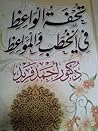 تحفة الواعظ
في الخطب والمواعظ
دكتور أحمد فريد